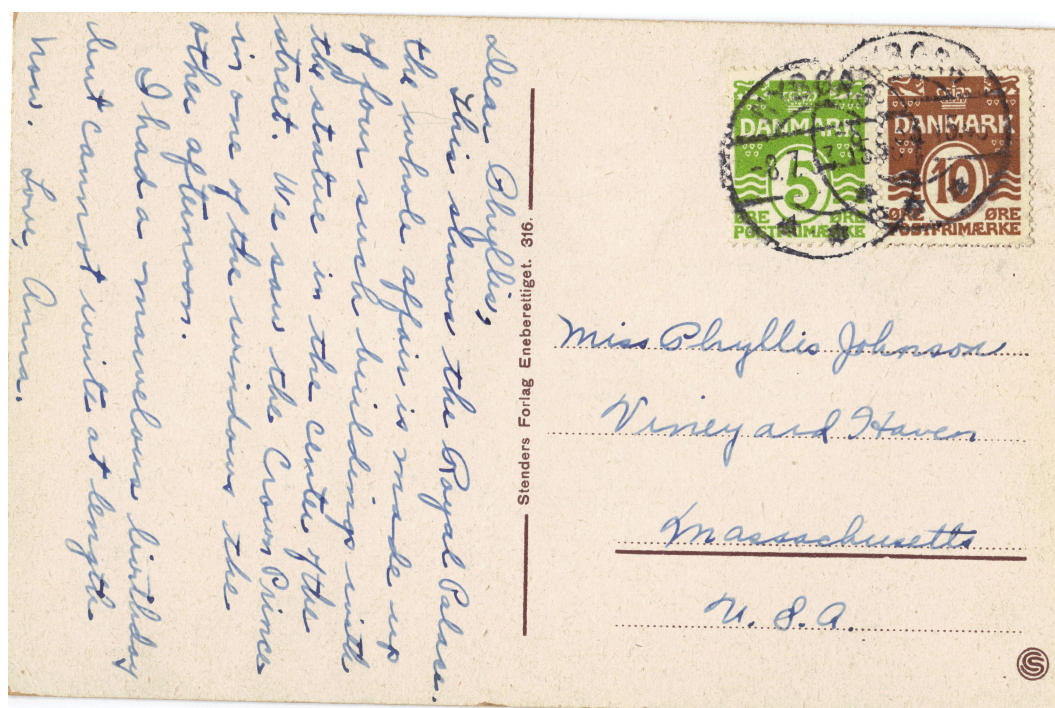 Dear Phyllis,
This shows the Royal Palace.
the whole affair is made up
of four such buildings with
the statue in the center of the
street. We saw the Crown Prince
in one of the windows the
other afternoon.
I had a marvelous birthday
but cannot write at length
now. Love, Anna.
Stenders Forlag Eneberettiget. 316.
DANMARK
5
ØRE ØRE
POSTFRIMÆRKE
DANMARK
10
ØRE ØRE
POSTFRIMÆRKE
Miss Phyllis Johnson
Vineyard Haven
Massachusetts
U. S. A.